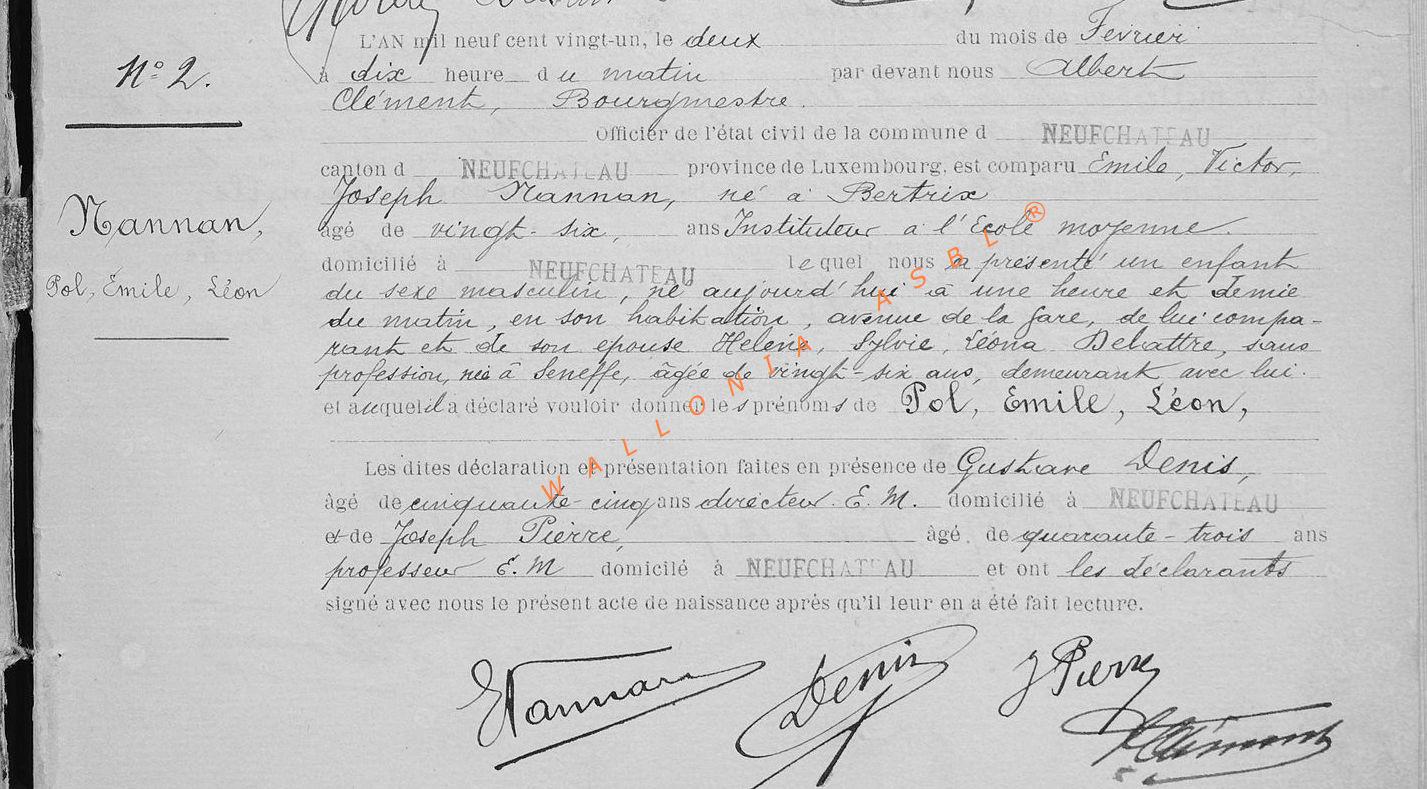 N° 2.
Nannan,
Pol, Émile, Léon
L'AN mil neuf cent vingt-un, le deux du mois de Février
à dix heure du matin par devant nous Albert
Clément, Bourgmestre.
Officier de l'état civil de la commune d NEUFCHATEAU
canton d NEUFCHATEAU province de Luxembourg, est comparu Emile, Victor,
Joseph Nannan, né à Bertrix
âgé de vingt-six, ans Instituteur à l'Ecole moyenne.
domicilié à NEUFCHATEAU lequel nous a présenté un enfant
du sexe masculin, né aujourd'hui à une heure et demie
du matin, en son habitation, avenue de la gare, de lui compa-
rant et de son épouse Helena, Sylvie, Léona Debattre, sans
profession, née à Seneffe, âgée de vingt-six ans, demeurant avec lui.
et auquel il a déclaré vouloir donner les prénoms de Pol, Emile, Léon,
Les dites déclaration et présentation faites en présence de Gustave Denis,
âgé de cinquante-cinq ans directeur E. M. domicilié à NEUFCHATEAU
et de Joseph Pierre, âgé de quarante-trois ans
professeur E. M domicilé à NEUFCHATEAU et ont les déclarants
signé avec nous le présent acte de naissance après qu'il leur en a été fait lecture.
ENannan Denis J Pierre
AClément
WALLONIA ASBL ®